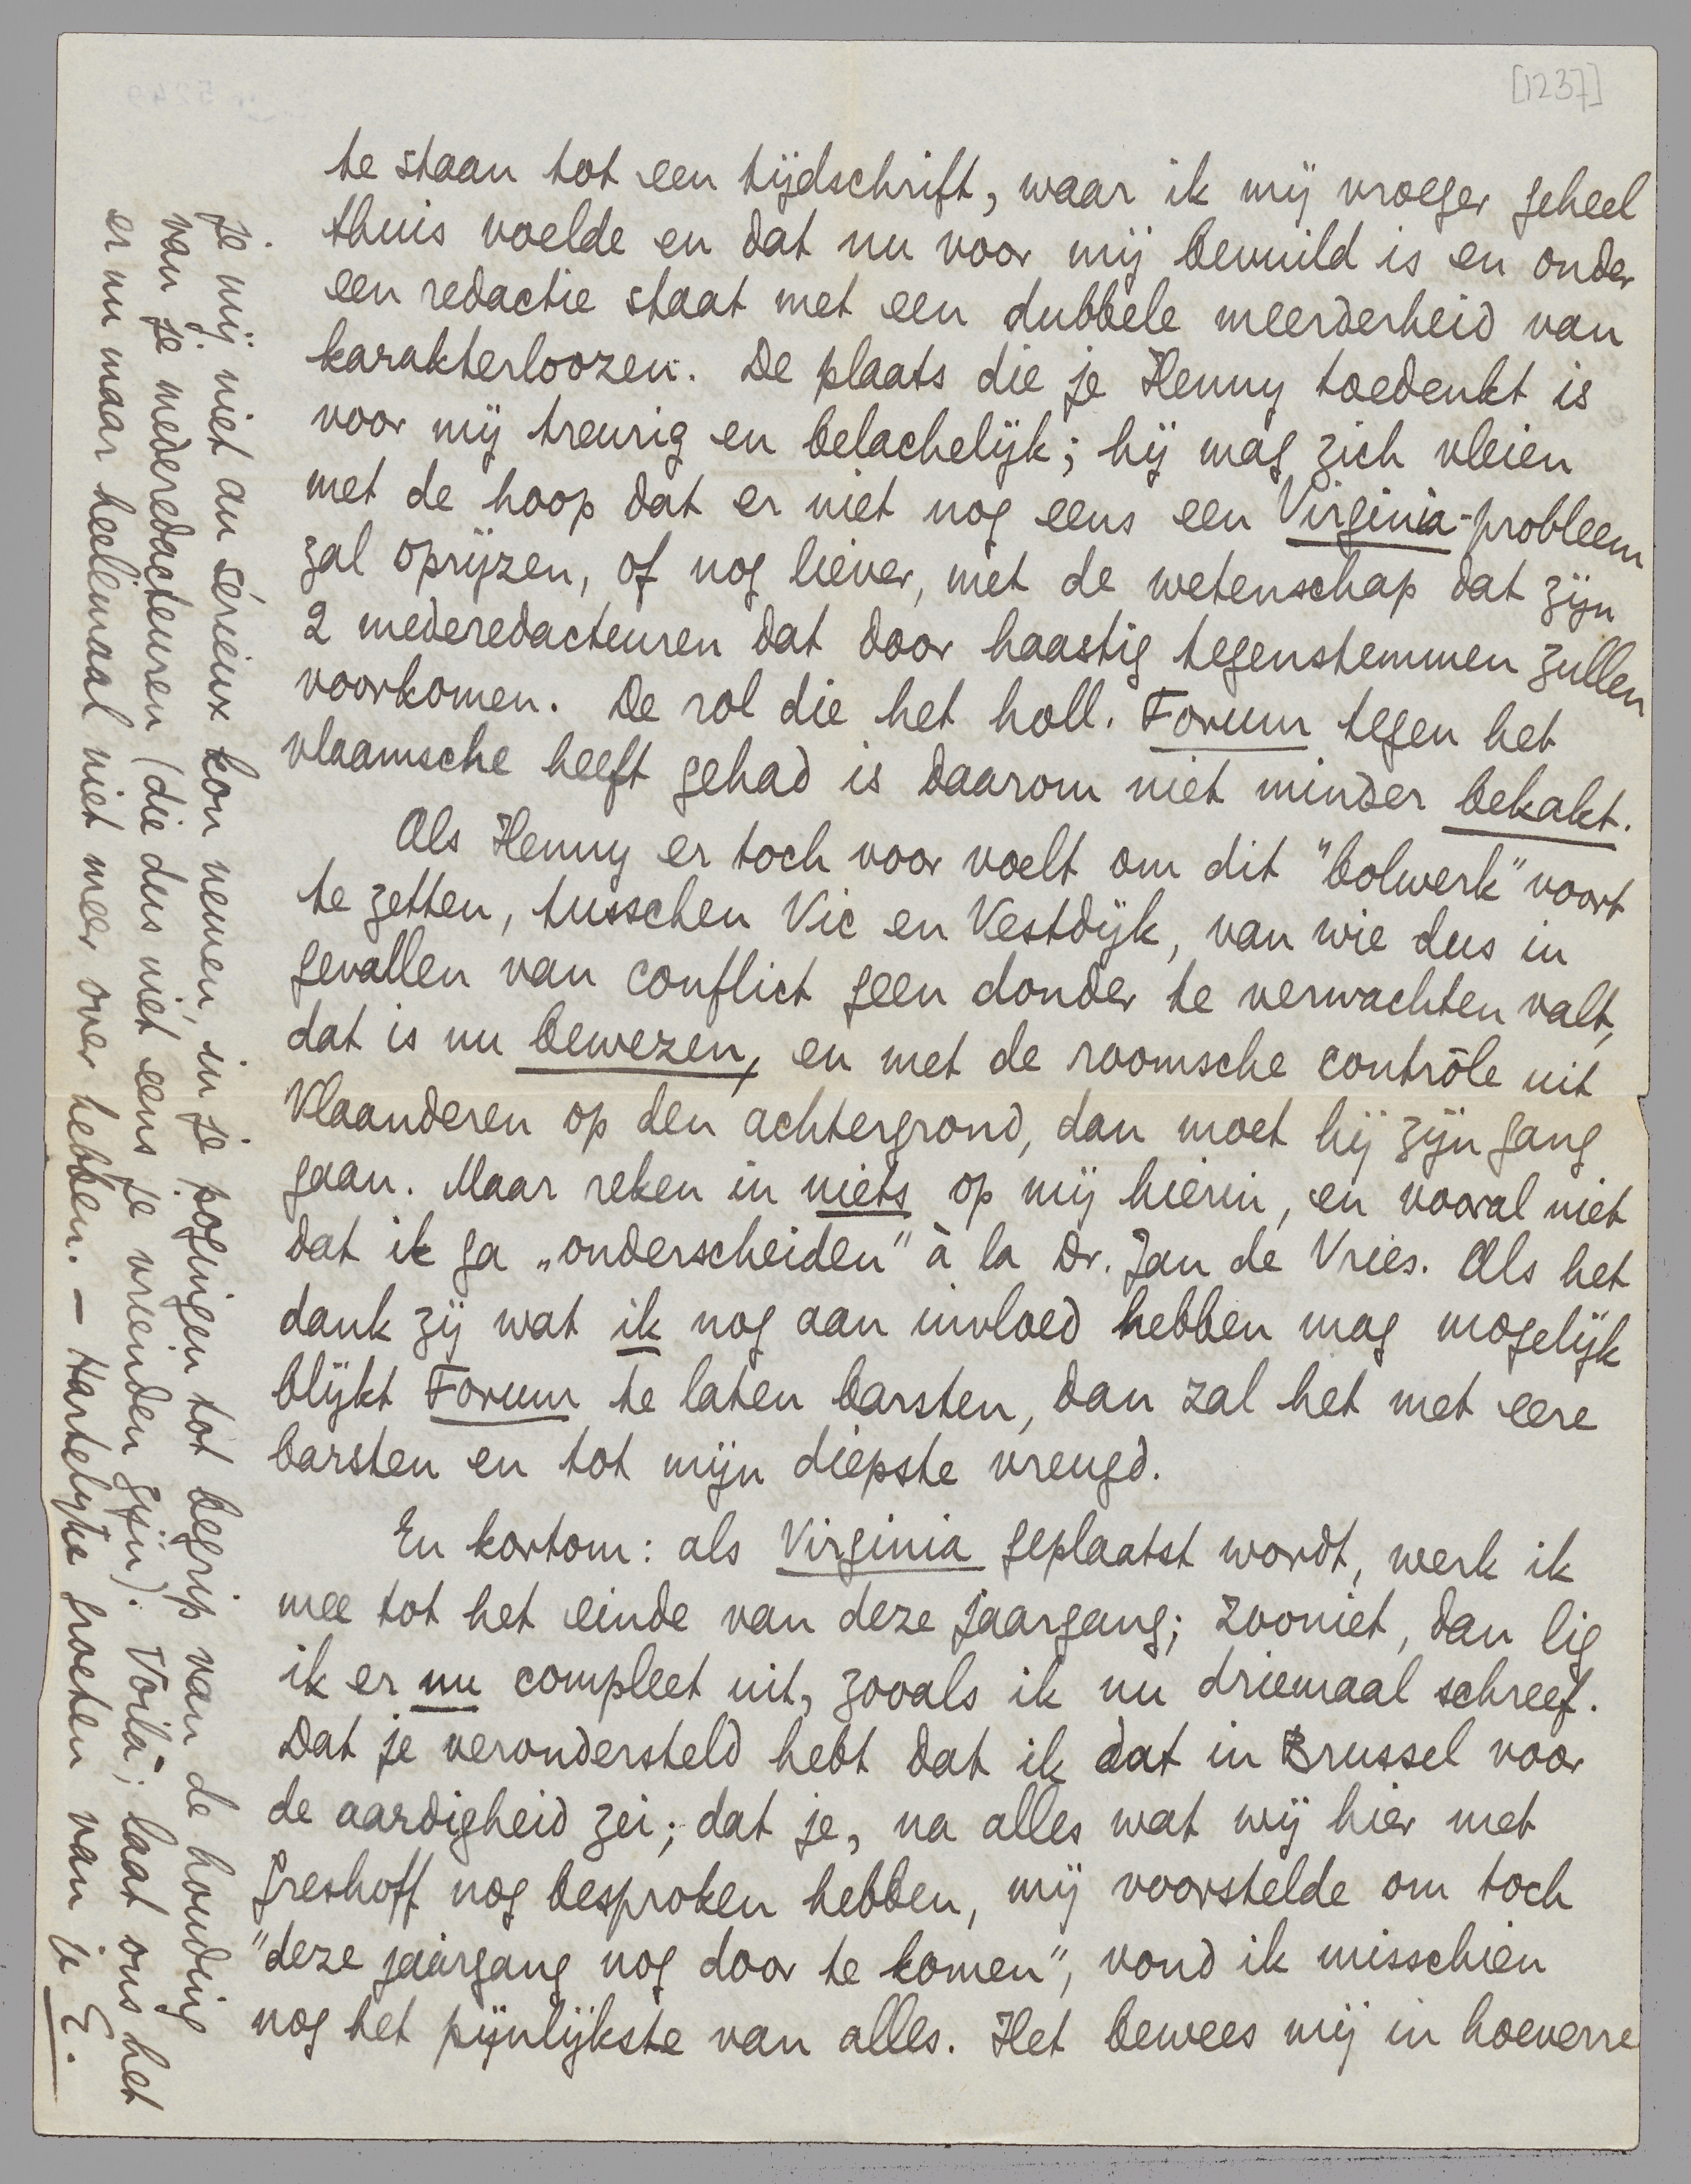 [1237]
te staan tot een tijdschrift, waar ik mij vroeger geheel
thuis voelde en dat nu voor mij bevuild is en onder
een redactie staat met een dubbele meerderheid van
karakterloozen. De plaats die je Henny toedenkt is
voor mij treurig en belachelijk; hij mag zich vleien
met de hoop dat er niet nog eens een Virginia-probleem
zal oprijzen, of nog liever, met de wetenschap dat zijn
2 mederedacteuren dat door haastig tegenstemmen zullen
voorkomen. De rol die het holl. Forum tegen het
vlaamsche heeft gehad is daarom niet minder bekakt.
Als Henny er toch voor voelt om dit "bolwerk" voort
te zetten, tusschen Vic en Vestdijk, van wie dus in
gevallen van conflict geen donder te verwachten valt,
dat is nu bewezen, en met de roomsche contrôle uit
Vlaanderen op den achtergrond, dan moet hij zijn gang
gaan. Maar reken in niets op mij hierin, en vooral niet
dat ik ga „onderscheiden" à la Dr. Jan de Vries. Als het
dank zij wat ik nog aan invloed hebben mag mogelijk
blijkt Forum te laten barsten, dan zal het met eere
barsten en tot mijn diepste vreugd.
En kortom: als Virginia geplaatst wordt, werk ik
mee tot het einde van deze jaargang; zooniet, dan lig
ik er nu compleet uit, zooals ik nu driemaal schreef.
Dat je verondersteld hebt dat ik dat in Brussel voor
de aardigheid zei; dat je, na alles wat wij hier met
Greshoff nog besproken hebben, mij voorstelde om toch
"deze jaargang nog door te komen", vond ik misschien
nog het pijnlijkste van alles. Het bewees mij in hoeverre
je mij niet au sérieux kon nemen, in je pogingen tot begrip van de houding
van je mederedacteuren (die dus niet eens je vrienden zijn). Voilà; laat ons het
er nu maar heelemaal niet meer over hebben. — Hartelijke groeten van je E.